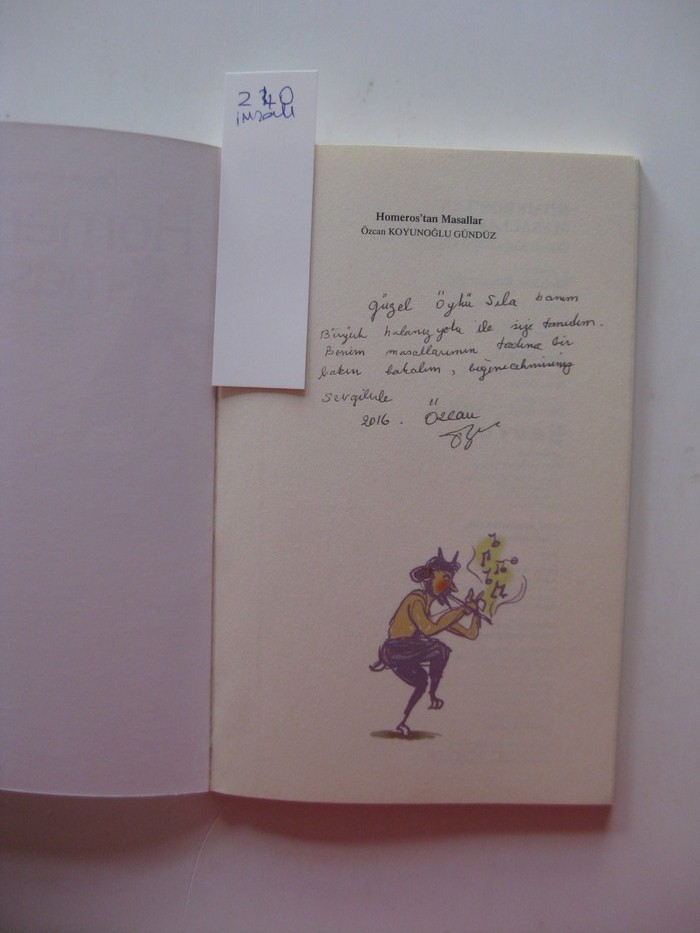 240
imzalı
Homeros'tan Masallar
Özcan KOYUNOĞLU GÜNDÜZ
Güzel Öykü Sıla hanım
Büyük halanız yolu ile sizi tanıdım.
Benim masallarımın tadına bir
bakın bakalım, beğenecekmisiniz
sevgilile
2016. Özcan